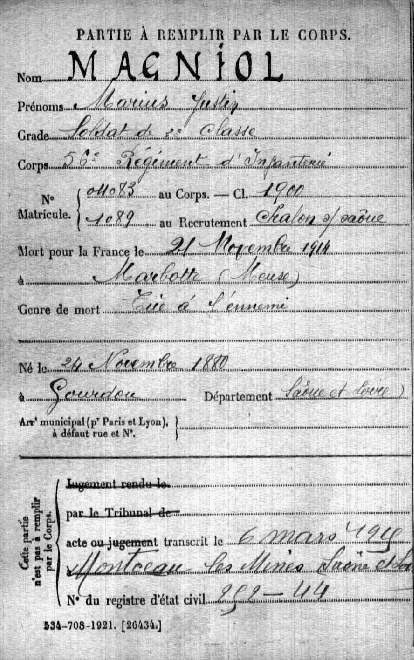 PARTIE À REMPLIR PAR LE CORPS.
Nom MAGNIOL
Prénoms Marius Justin
Grade Soldat de 2e classe
Corps 56e Régiment d'Infanterie
N° Matricule. { 04083 au Corps. — Cl. 1900
1089 au Recrutement Chalon s/ Saône
Mort pour la France le 21 Novembre 1914
à Marbotte (Meuse)
Genre de mort Tué à l'ennemi
Né le 24 Novembre 1880
à Gourdon Département Saône et Loire
Arrt municipal (pr Paris et Lyon),
à défaut rue et N°.
Cette partie n'est pas à remplir par le Corps.
Jugement rendu le
par le Tribunal de
acte ou jugement transcrit le 6 mars
Montceau les Mines Saône et
N° du registre d'état civil 252-44
534-708-1921. [26434.]